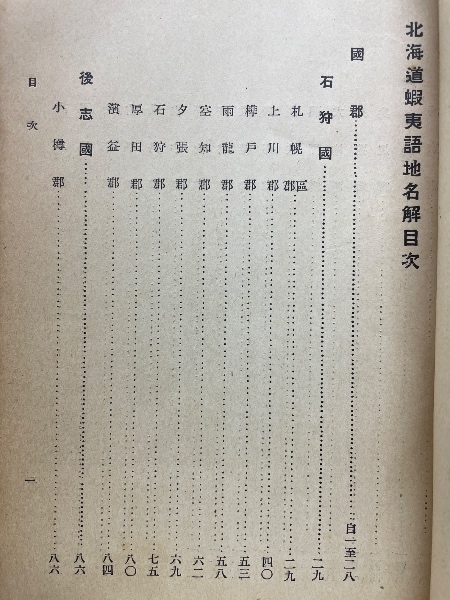 北海道蝦夷語地名解目次
國郡……自一至二八
石狩國……二九
札幌區郡……二九
上川郡……四〇
樺戶郡……五三
雨龍郡……五八
空知郡……六二
夕張郡……六九
石狩郡……七五
厚田郡……八〇
濱益郡……八四
後志國……八六
小樽郡……八六
目次
一